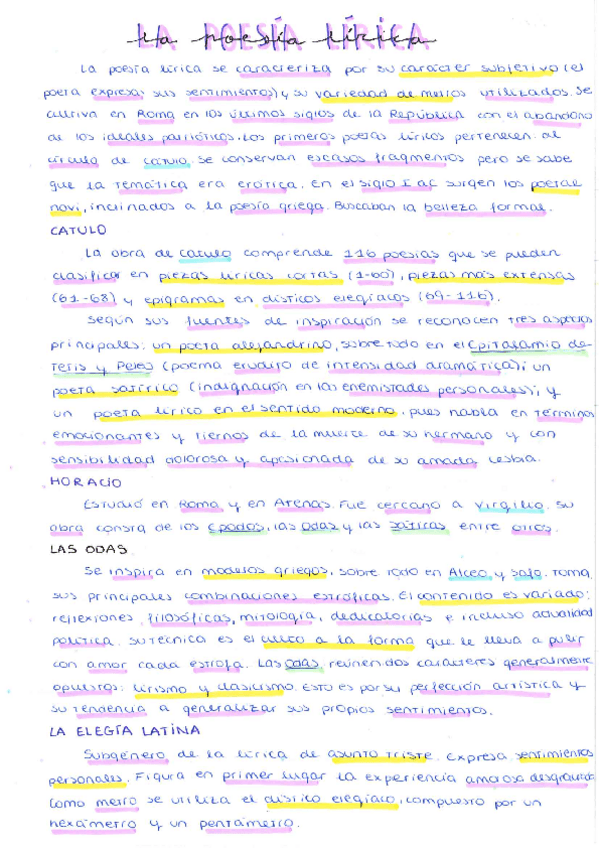 LA POESÍA LÍRICA
La poesía lírica se caracteriza por su carácter subjetivo (el
poeta expresa sus sentimientos) y su variedad de metros utilizados. Se
cultiva en Roma en los últimos siglos de la República con el abandono
de los ideales patrióticos. Los primeros poetas líricos pertenecen al
círculo de Catulo. Se conservan escasos fragmentos pero se sabe
que la temática era erótica. En el siglo I aC surgen los poetae
novi, inclinados a la poesía griega. Buscaban la belleza formal.
CATULO
La obra de Catulo comprende 116 poesías que se pueden
clasificar en piezas líricas cortas (1-60), piezas más extensas
(61-68) y epigramas en dísticos elegíacos (69-116).
Según sus fuentes de inspiración se reconocen tres aspectos
principales: un poeta alejandrino, sobre todo en el Epitalamio de
Tetis y Peleo (poema erudito de intensidad dramática); un
poeta satírico (indignación en las enemistades personales); y
un poeta lírico en el sentido moderno, pues habla en términos
emocionantes y tiernos de la muerte de su hermano y con
sensibilidad dolorosa y apasionada de su amada, Lesbia.
HORACIO
Estudió en Roma y en Atenas. Fue cercano a Virgilio. Su
obra consta de los Epodos, las Odas y las Sátiras, entre otros.
LAS ODAS
Se inspira en modelos griegos, sobre todo en Alceo y Safo. Toma
sus principales combinaciones estróficas. El contenido es variado:
reflexiones, filosóficas, mitología, dedicatorias e incluso actualidad
política. Su técnica es el culto a la forma que le lleva a pulir
con amor cada estrofa. Las Odas reúnen dos caracteres generalmente
opuestos: lirismo y clasicismo. Esto es por su perfección artística y
su tendencia a generalizar sus propios sentimientos.
LA ELEGÍA LATINA
Subgénero de la lírica de asunto triste. Expresa sentimientos
personales. Figura en primer lugar la experiencia amorosa desgraciada
Como metro se utiliza el dístico elegíaco, compuesto por un
hexámetro y un pentámetro.